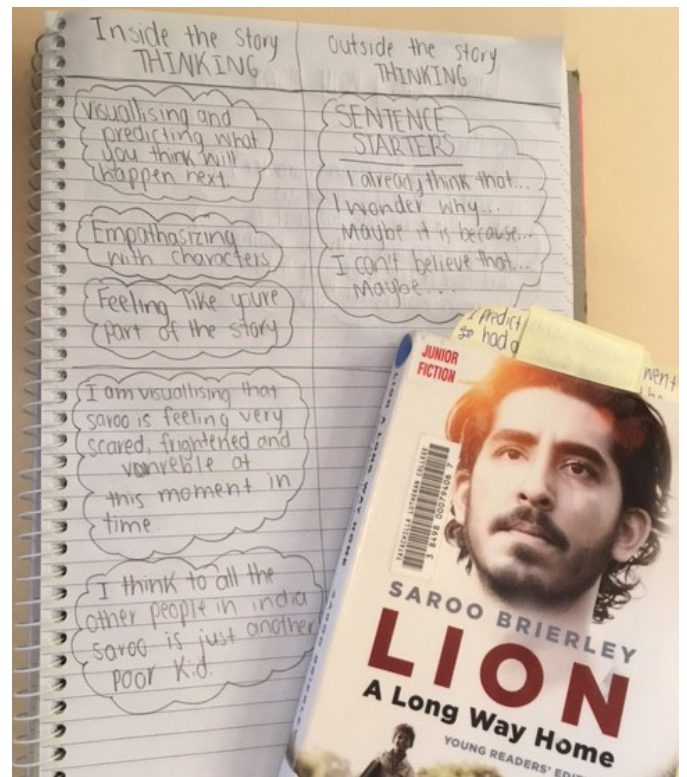 Inside the story
THINKING
Visuallising and
predicting what
you think will
happen next.
Empathasizing
with characters
Feeling like youre
part of the story
I am visuallising that
saroo is feeling very
scared, frightened and
vonreble at
this moment in
time.
I think to all the
other people in india
saroo is just another
poor kid.
outside the story
THINKING
SENTENCE
STARTERS
I already think that...
I wonder why...
Maybe it is because...
I can't believe that...
Maybe...
I predict
had
went
JUNIOR
FICTION
TATACHILLA LUTHERAN COLLEGE
3 8498 00079406 7
SAROO BRIERLEY
LION
A Long Way Home
YOUNG READERS' EDI